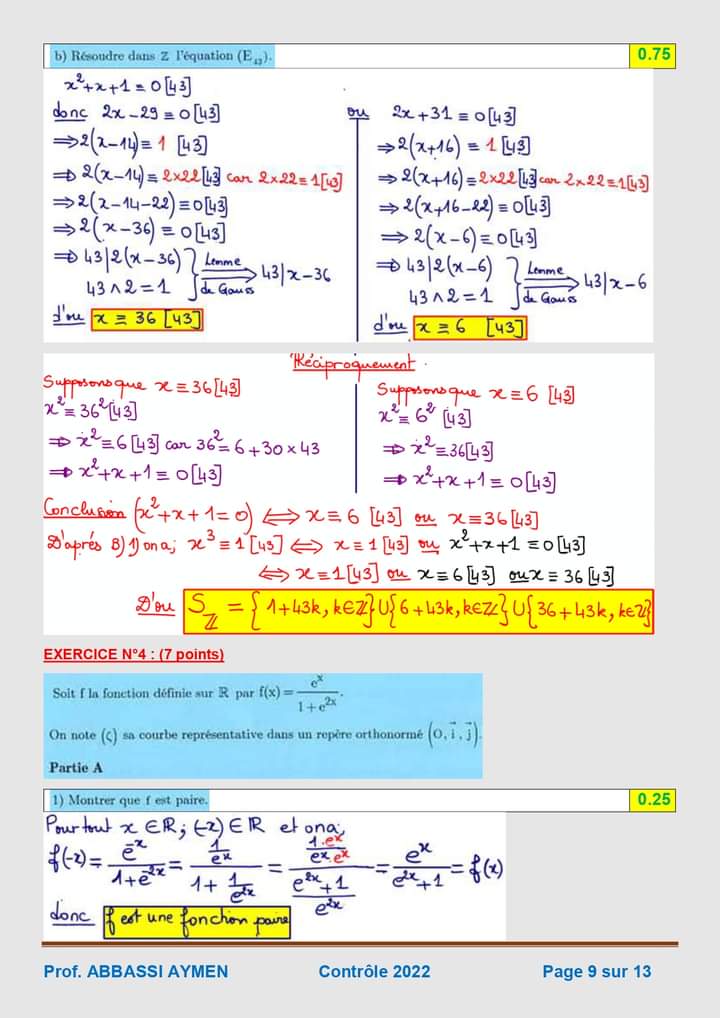 b) Résoudre dans ℤ l'équation (E₄₃).
0.75
x²+x+1 ≡ 0 [43]
donc 2x-29 ≡ 0 [43]
⇒ 2(x-14) ≡ 1 [43]
⇒ 2(x-14) ≡ 2×22 [43] car 2×22 ≡ 1 [43]
⇒ 2(x-14-22) ≡ 0 [43]
⇒ 2(x-36) ≡ 0 [43]
⇒ 43|2(x-36)
43∧2 = 1
Lemme
de Gauss
43|x-36
d'où x ≡ 36 [43]
ou 2x+31 ≡ 0 [43]
⇒ 2(x+16) ≡ 1 [43]
⇒ 2(x+16) ≡ 2×22 [43] car 2×22 ≡ 1 [43]
⇒ 2(x+16-22) ≡ 0 [43]
⇒ 2(x-6) ≡ 0 [43]
⇒ 43|2(x-6)
43∧2 = 1
Lemme
de Gauss
43|x-6
d'où x ≡ 6 [43]
Réciproquement
Supposons que x ≡ 36 [43]
x² ≡ 36² [43]
⇒ x² ≡ 6 [43] car 36² = 6 + 30 × 43
⇒ x²+x+1 ≡ 0 [43]
Supposons que x ≡ 6 [43]
x² ≡ 6² [43]
⇒ x² ≡ 36 [43]
⇒ x²+x+1 ≡ 0 [43]
Conclusion (x²+x+1=0) ⟺ x ≡ 6 [43] ou x ≡ 36 [43]
D'après B) 1) on a; x³ ≡ 1 [43] ⟺ x ≡ 1 [43] ou x²+x+1 ≡ 0 [43]
⟺ x ≡ 1 [43] ou x ≡ 6 [43] ou x ≡ 36 [43]
D'où S_ℤ = {1+43k, k∈ℤ} ∪ {6+43k, k∈ℤ} ∪ {36+43k, k∈ℤ}
EXERCICE N°4 : (7 points)
Soit f la fonction définie sur ℝ par f(x) = eˣ / (1+e²ˣ).
On note (ς) sa courbe représentative dans un repère orthonormé (O, i⃗, j⃗).
Partie A
1) Montrer que f est paire.
0.25
Pour tout x ∈ ℝ; (-x) ∈ ℝ et on a;
f(-x) = e⁻ˣ / (1+e⁻²ˣ) = (1/eˣ) / (1 + 1/e²ˣ) = (1·eˣ / eˣ·eˣ) / ((e²ˣ+1) / e²ˣ) = eˣ / (e²ˣ+1) = f(x)
donc f est une fonction paire
Prof. ABBASSI AYMEN Contrôle 2022 Page 9 sur 13